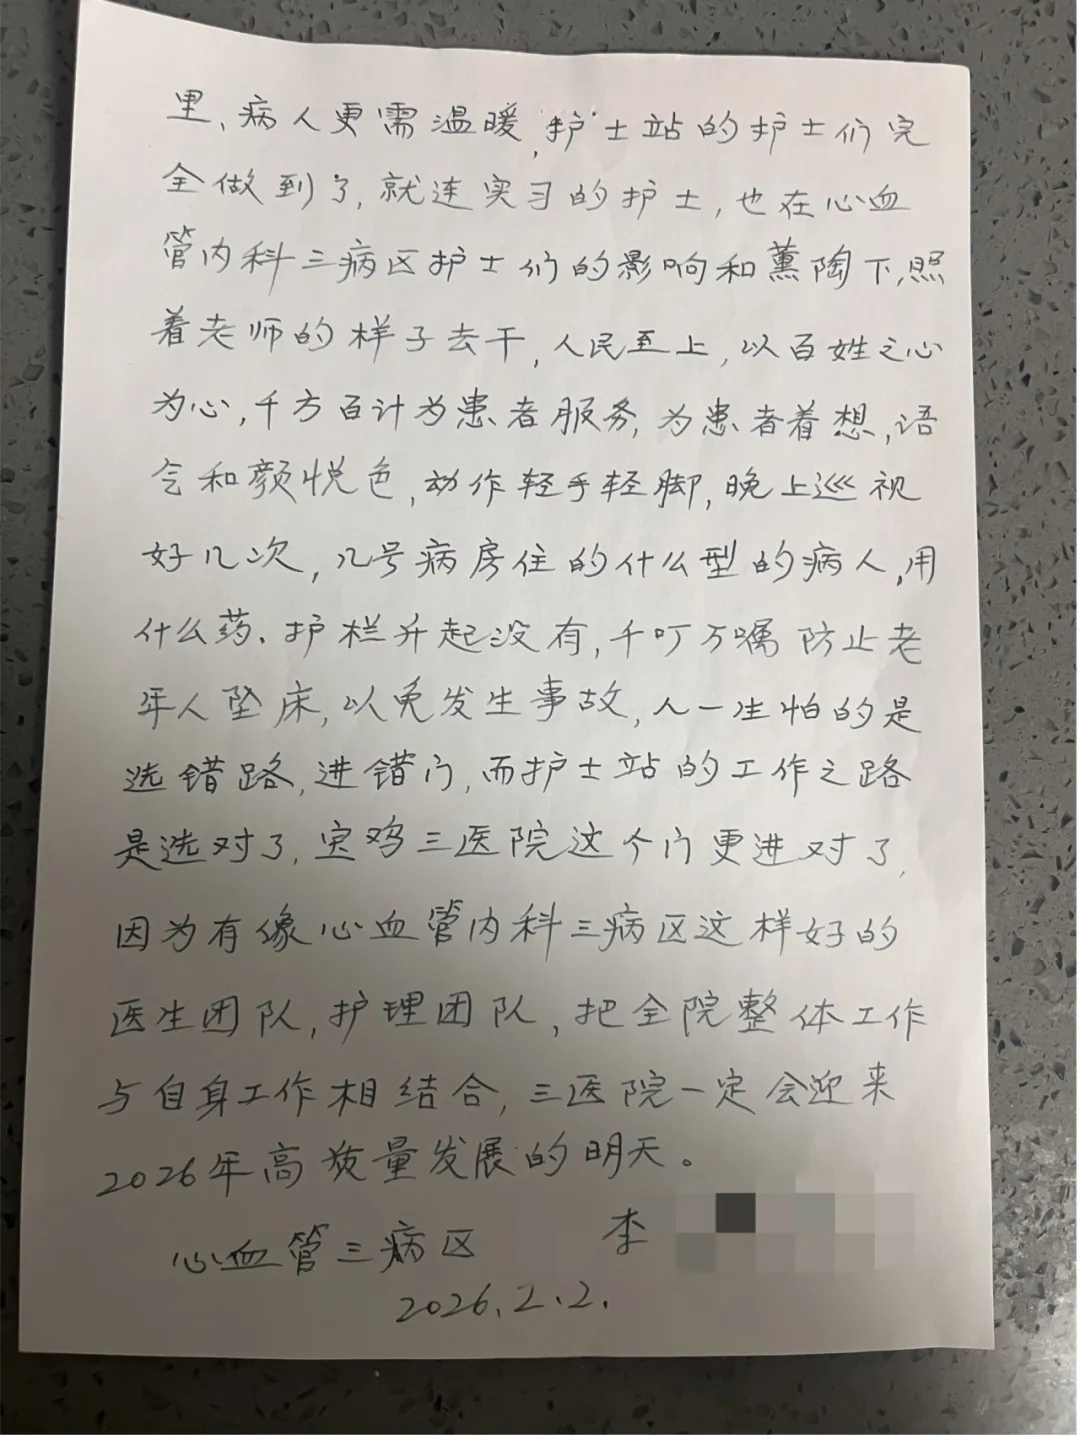 里、病人更需温暖,护士站的护士们完
全做到了,就连实习的护士,也在心血
管内科三病区护士们的影响和薰陶下,照
着老师的样子去干,人民至上,以百姓之心
为心,千方百计为患者服务,为患者着想,语
气和颜悦色,动作轻手轻脚,晚上巡视
好几次,几号病房住的什么型的病人,用
什么药、护栏升起没有,千叮万嘱防止老
年人坠床,以免发生事故,人一生怕的是
选错路,进错门,而护士站的工作之路
是选对了,宝鸡三医院这个门更进对了,
因为有像心血管内科三病区这样好的
医生团队,护理团队,把全院整体工作
与自身工作相结合,三医院一定会迎来
2026年高质量发展的明天。
心血管三病区 李
2026.2.2.